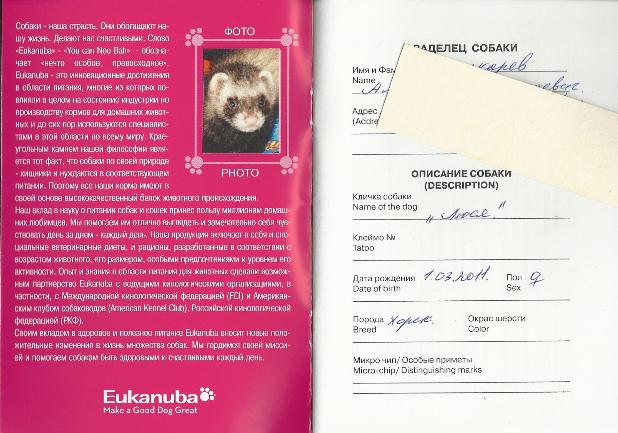 Собаки - наша страсть. Они обогащают на-
шу жизнь. Делают нас счастливыми. Слово
«Eukanuba» - «You can Noo Bah» - обозна-
чает «нечто особое, превосходное».
Eukanuba - это инновационные достижения
в области питания, многие из которых по-
влияли в целом на состояние индустрии по
производству кормов для домашних живот-
ных и до сих пор используются специалис-
тами в этой области по всему миру. Крае-
угольным камнем нашей философии явля-
ется тот факт, что собаки по своей природе
- хищники и нуждаются в соответствующем
питании. Поэтому все наши корма имеют в
своей основе высококачественный белок животного происхождения.
Наш вклад в науку о питании собак и кошек принес пользу миллионам домаш-
них любимцев. Мы помогаем им отлично выглядеть и замечательно себя чув-
ствовать день за днем - каждый день. Наша продукция включает в себя и спе-
циальные ветеринарные диеты, и рационы, разработанные в соответствии с
возрастом животного, его размером, особыми предпочтениями и уровнем его
активности. Опыт и знания в области питания для животных сделали возмож-
ным партнерство Eukanuba с ведущими кинологическими организациями, в
частности, с Международной кинологической федерацией (FCI) и Американ-
ским клубом собаководов (American Kennel Club), Российской кинологической
федерацией (РКФ).
Своим вкладом в здоровое и полезное питание Eukanuba вносит новые поло-
жительные изменения в жизнь множества собак. Мы гордимся своей мисси-
ей и помогаем собакам быть здоровыми и счастливыми каждый день.
ФОТО
PHOTO
Eukanuba
Make a Good Dog Great
ДЕЛЕЦ СОБАКИ
Имя и Фам
Name
Адрес
(Addre
ОПИСАНИЕ СОБАКИ
(DESCRIPTION)
Кличка собаки
Name of the dog „Люся."
Клеймо №
Tatoo
Дата рождения 1.03.2011. Пол ♀
Date of birth Sex
Порода Хорек. Окрас шерсти
Breed Color
Микро чип/ Особые приметы
Micro-chip/ Distinguishing marks